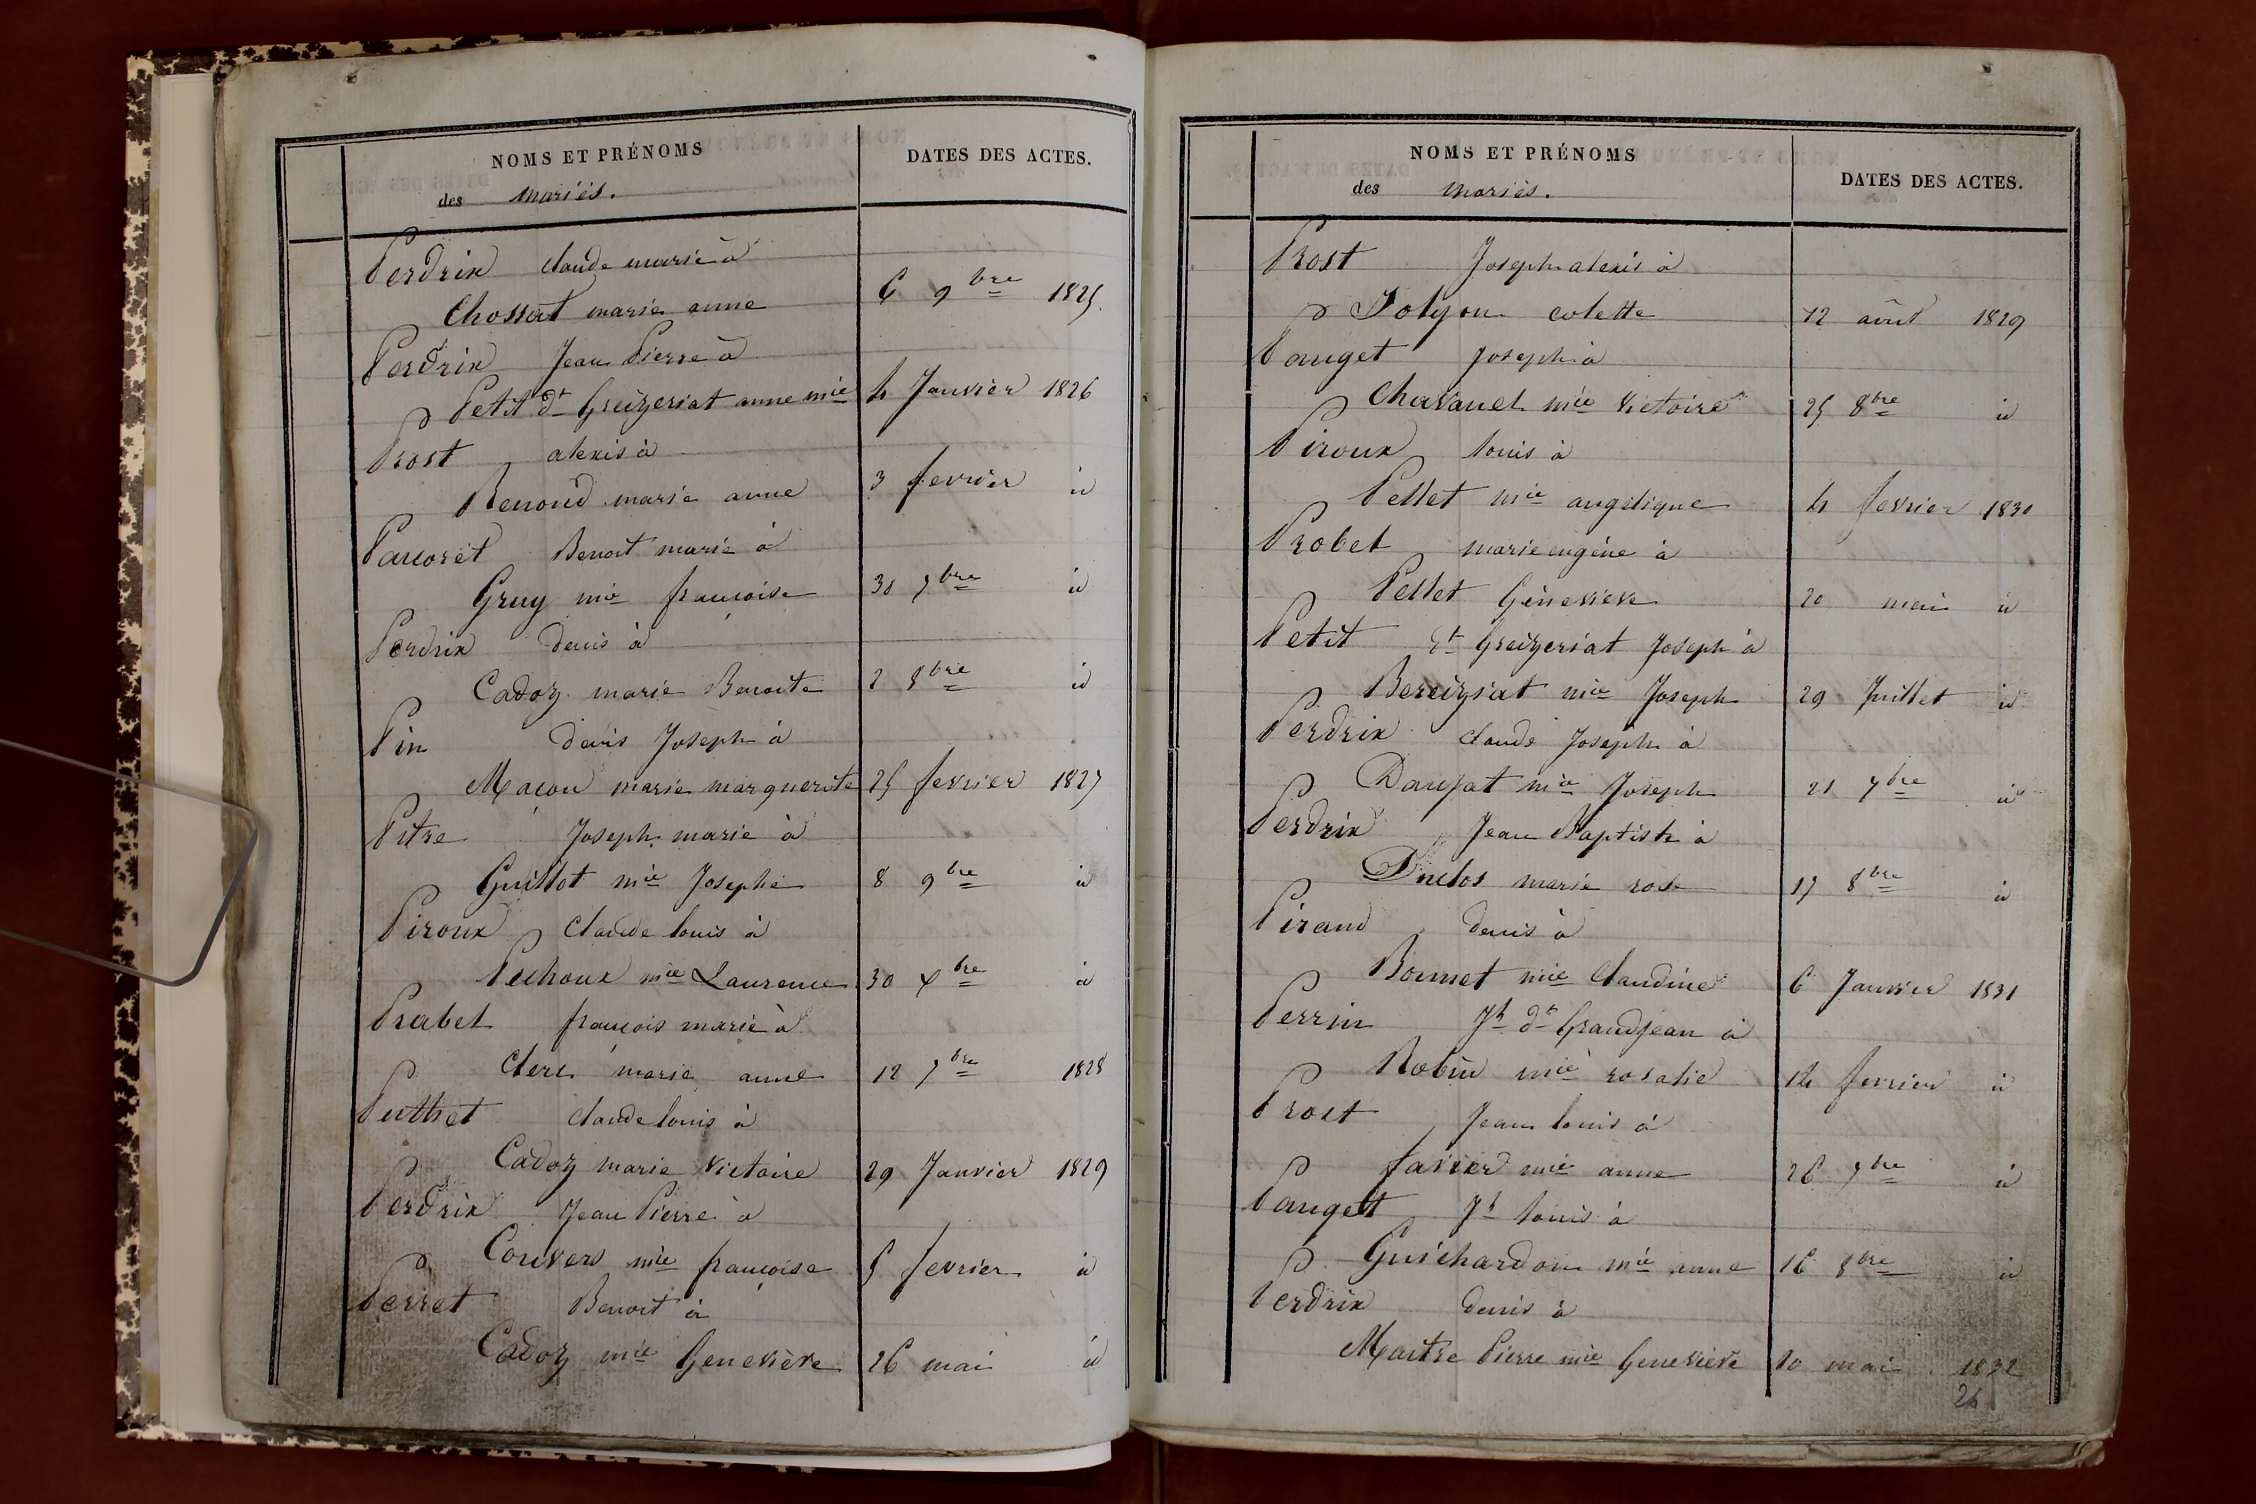 NOMS ET PRÉNOMS
des mariés.
DATES DES ACTES.
Perdrix claude marie à
Chossat marie anne 6 9bre 1825.
Perdrix Jean Pierre à
Petit dt Greizeriat anne mie 4 Janvier 1826
Prost alexis à
Renoud marie anne 3 fevrier id
Pauvret Benoit marie à
Gruy mie françoise 30 7bre id
Perdrix denis à
Cadoz marie Benoite 2 8bre id
Pin denis Joseph à
Maçon marie marguerite 25 fevrier 1827
Pitre Joseph marie à
Guillot mie Josephe 8 9bre id
Piroux claude louis à
Pechoux mie Laurence 30 xbre id
Prabel françois marie à
Clerc marie anne 12 7bre 1828
Puthet claude louis à
Cadoz marie Victoire 29 Janvier 1829
Perdrix Jean Pierre à
Convers mie françoise 5 fevrier id
Perret Benoit à
Cadoz mie Geneviève 26 mai id
NOMS ET PRÉNOMS
des mariés.
DATES DES ACTES.
Prost Joseph alexis à
Jolyon colette 12 août 1829
Pauget Joseph à
Chavanel mie Victoire 25 8bre id
Piroux louis à
Pellet mie angelique 4 fevrier 1830
Probet marie eugène à
Pellet Génevieve 20 mai id
Petit dt Greizeriat Joseph à
Bereiziat mie Joseph 29 Juillet id
Perdrix claude Joseph à
Daujat mie Joseph 21 7bre id
Perdrix Jean Baptiste à
Duclos marie rose 17 8bre id
Piraud denis à
Bonnet mie claudine 6 Janvier 1831
Perrin Jh dt Grandjean à
Robin mie rosalie 14 fevrier id
Prost Jean louis à
favier mie anne 26 7bre id
Pauget Jh louis à
Guichardon mie anne 16 8bre id
Perdrix denis à
Maitre Pierre mie Genevieve 10 mai 1832
26